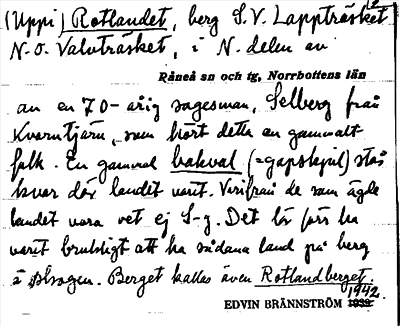 (Uppi) Rotlandet, berg S.V. Lappträsket
N.O. Valvträsket, i N. delen av
Råneå sn och tg, Norrbottens län
av en 70-årig sagesman, Selberg från
Kvarntjärn, som hört detta av gammalt
folk. En gammal bakval (=gapskjul) står
kvar där landet varit. Varifrån de som ägde
landet vora vet ej S-g. Det lär förr ha
varit brukligt att ha sådana land på berg
i skogen. Berget kallas även Rotlandberget.
EDVIN BRÄNNSTRÖM 1942